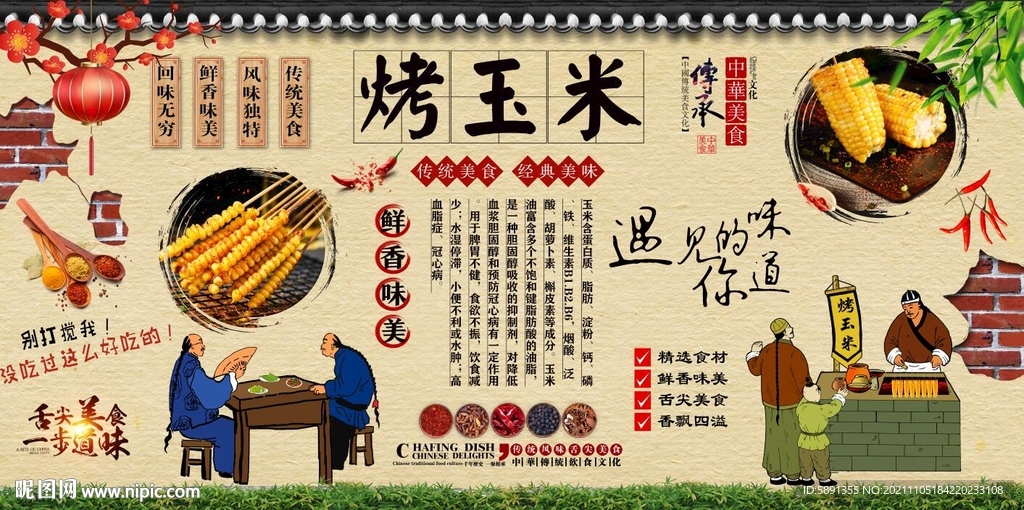 烤玉米
传统美食
风味独特
鲜香味美
回味无穷
中華美食
文化
傳承
【中國傳統美食文化】
中華美食
传统美食 经典美味
鲜香味美
玉米含蛋白质、脂肪、淀粉、钙、磷
、铁、维生素B1.B2.B6'、烟酸、泛
酸、胡萝卜素、槲皮素等成分。玉米
油富含多个不饱和键脂肪酸的油脂，
是一种胆固醇吸收的抑制剂，对降低
血浆胆固醇和预防冠心病有一定作用
。用于脾胃不健，食欲不振，饮食减
少；水湿停滞，小便不利或水肿；高
血脂症、冠心病。
遇见你的味道
别打搅我！
没吃过这么好吃的！
舌尖美食
一步道味
A BITE OF CHINA
烤玉米
精选食材
鲜香味美
舌尖美食
香飘四溢
CHAFING DISH
CHINESE DELIGHTS
Chinese traditional food culture 千年歷史 一脈相承
传统风味舌尖美食
中華傳統飲食文化
昵图网 www.nipic.com
ID:5891355 NO:20211105184220233108